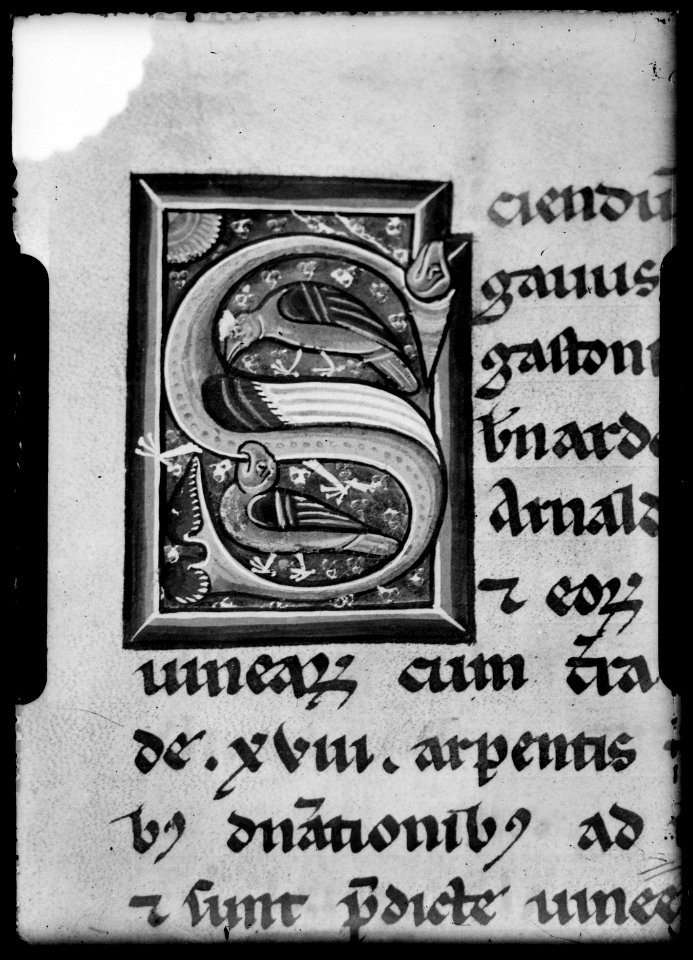 S
ciendū
gauius
gastoni
bnardo
Arnald
⁊ eoꝝ
uineaꝝ cum t̄ra
de . xviii . arpentis
bꝰ dn̄ationibꝰ ad
⁊ sunt p̄dicte uinee